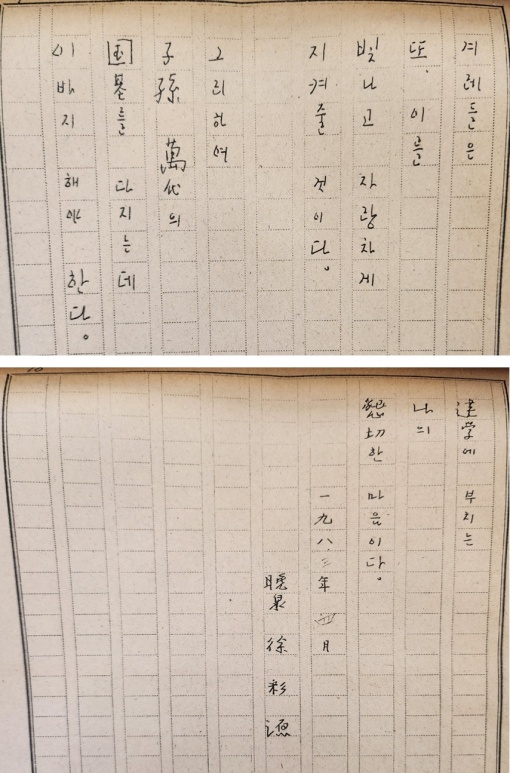 겨레들은
또, 이를
빛나고 자랑차게
지켜줄 것이다。
그리하여
子孫 萬代의
国基를 다지는데
이바지 해야 한다。
達学에 부치는
나의
懇切한 마음이다。
一九八三年 四月
曉泉 徐 彩